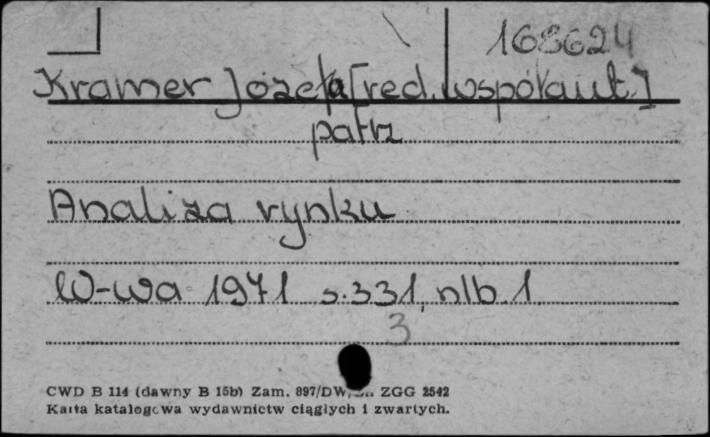 168624
Kramer Józefa [red. współaut.]
patrz
Analiza rynku
W-wa 1971 s.331, nlb.1
3
CWD B 114 (dawny B 15b) Zam. 897/DW, ZGG 2542
Karta katalogowa wydawnictw ciągłych i zwartych.